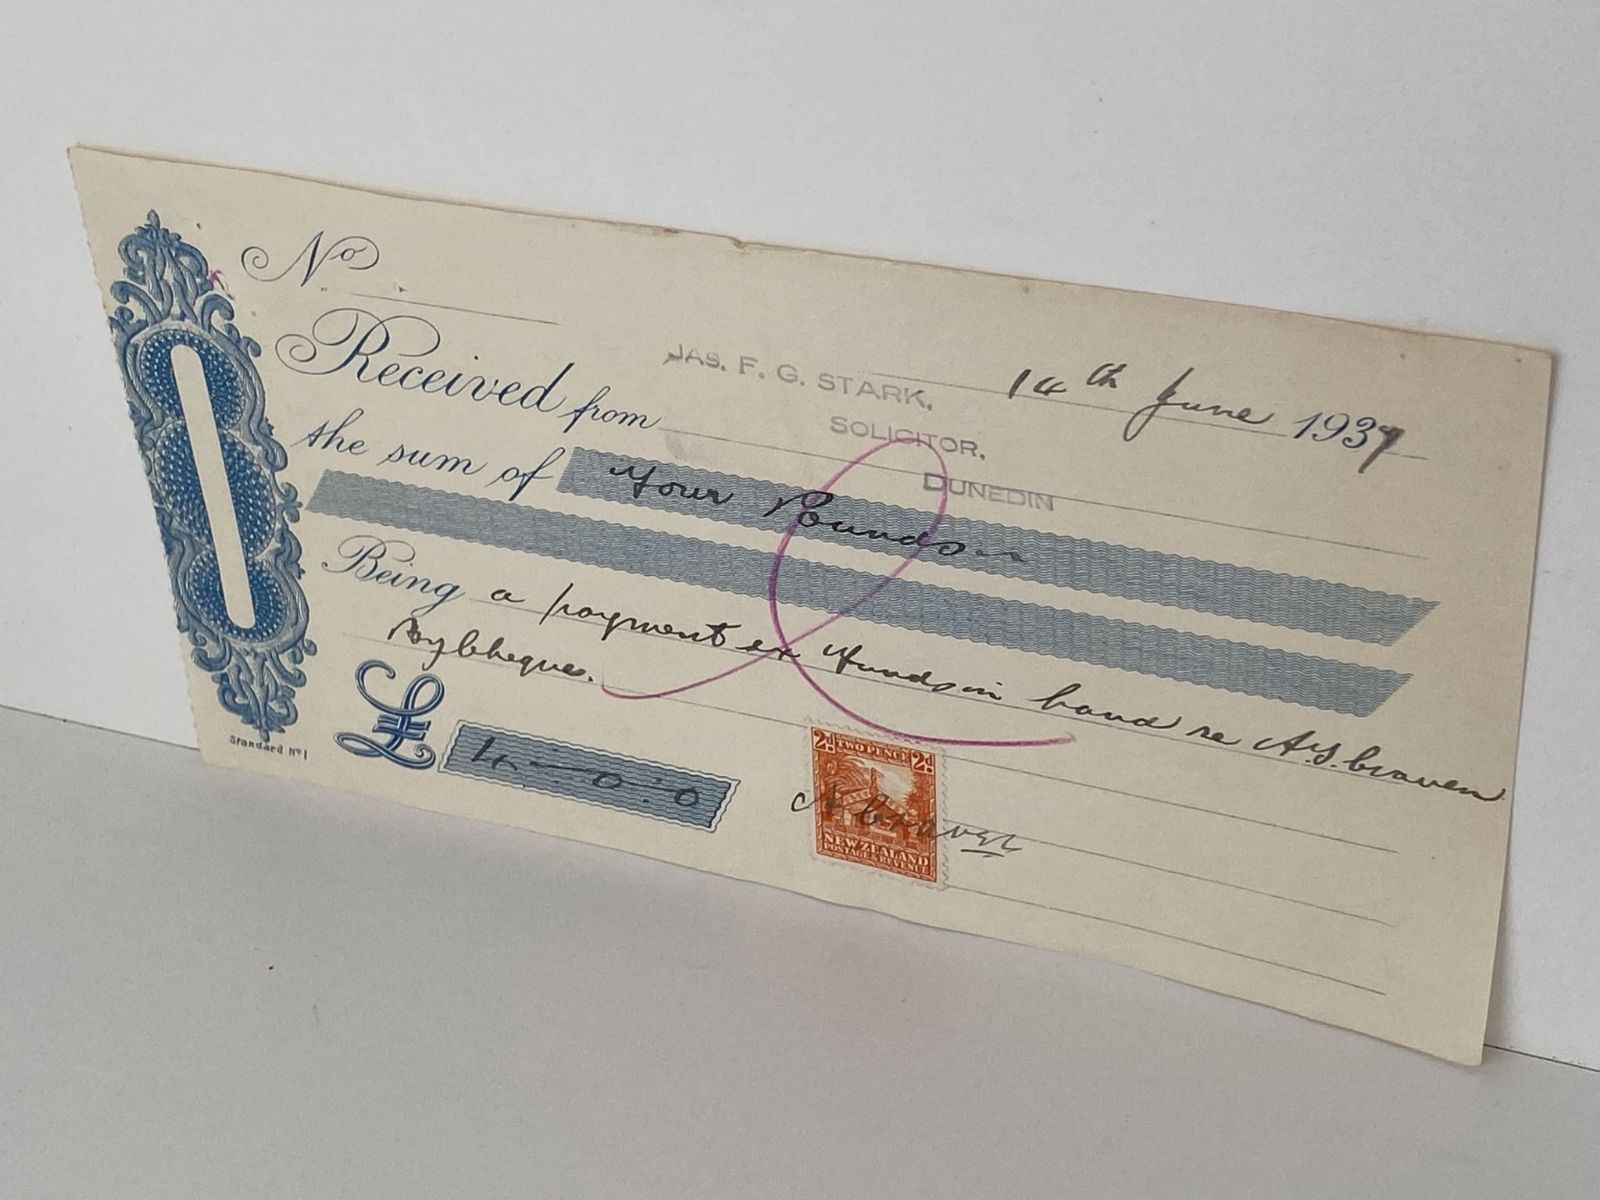 No
14th June 1937
Received from JAS. F. G. STARK,
SOLICITOR,
DUNEDIN
the sum of Four Pounds
Being a payment ex Funds in hand re A.S. Craven
By Cheque.
Standard No 1
£ 4 – 0 : 0
2d TWO PENCE 2d
NEW ZEALAND
POSTAGE & REVENUE
A Craven